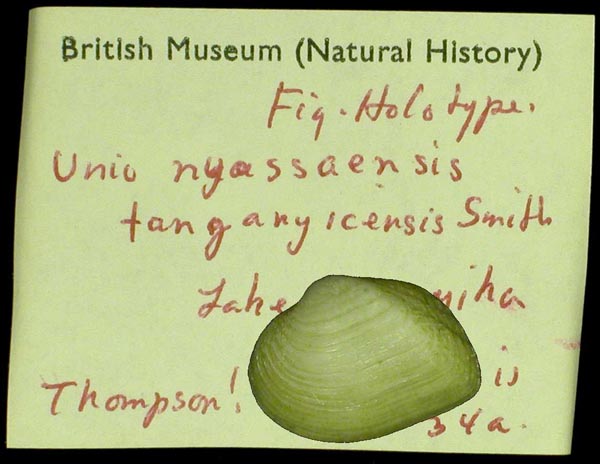 British Museum (Natural History)
Fig. Holotype.
Unio nyassaensis
tanganyicensis Smith
Lake
Thompson!
34a.